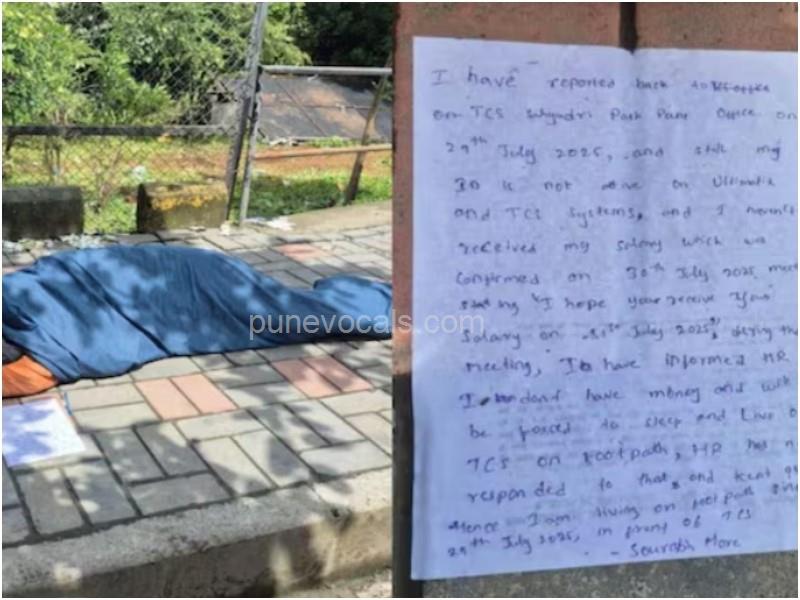 punevocals.com
I have reported back to office
on TCS Sahyadri Park Pune Office on
29th July 2025, and still my
ID is not active on Ultimatix
and TCS systems, and I haven't
received my salary which was
confirmed on 30th July 2025 meet
"I hope your receive your
salary on 31st July 2025", during the
meeting, I have informed HR
I don't have money and will
be forced to sleep and Live o
TCS on footpath, HR has n
responded to that, and kept
Hence I am living on footpath
29th July 2025, in front of TCS
- Sourabh More